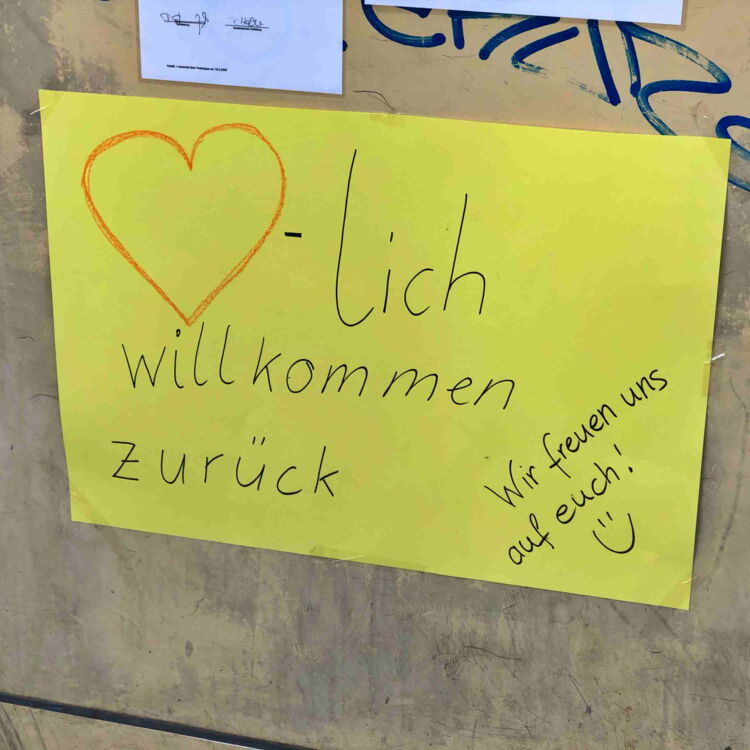 -lich
willkommen
zurück
Wir freuen uns
auf euch!